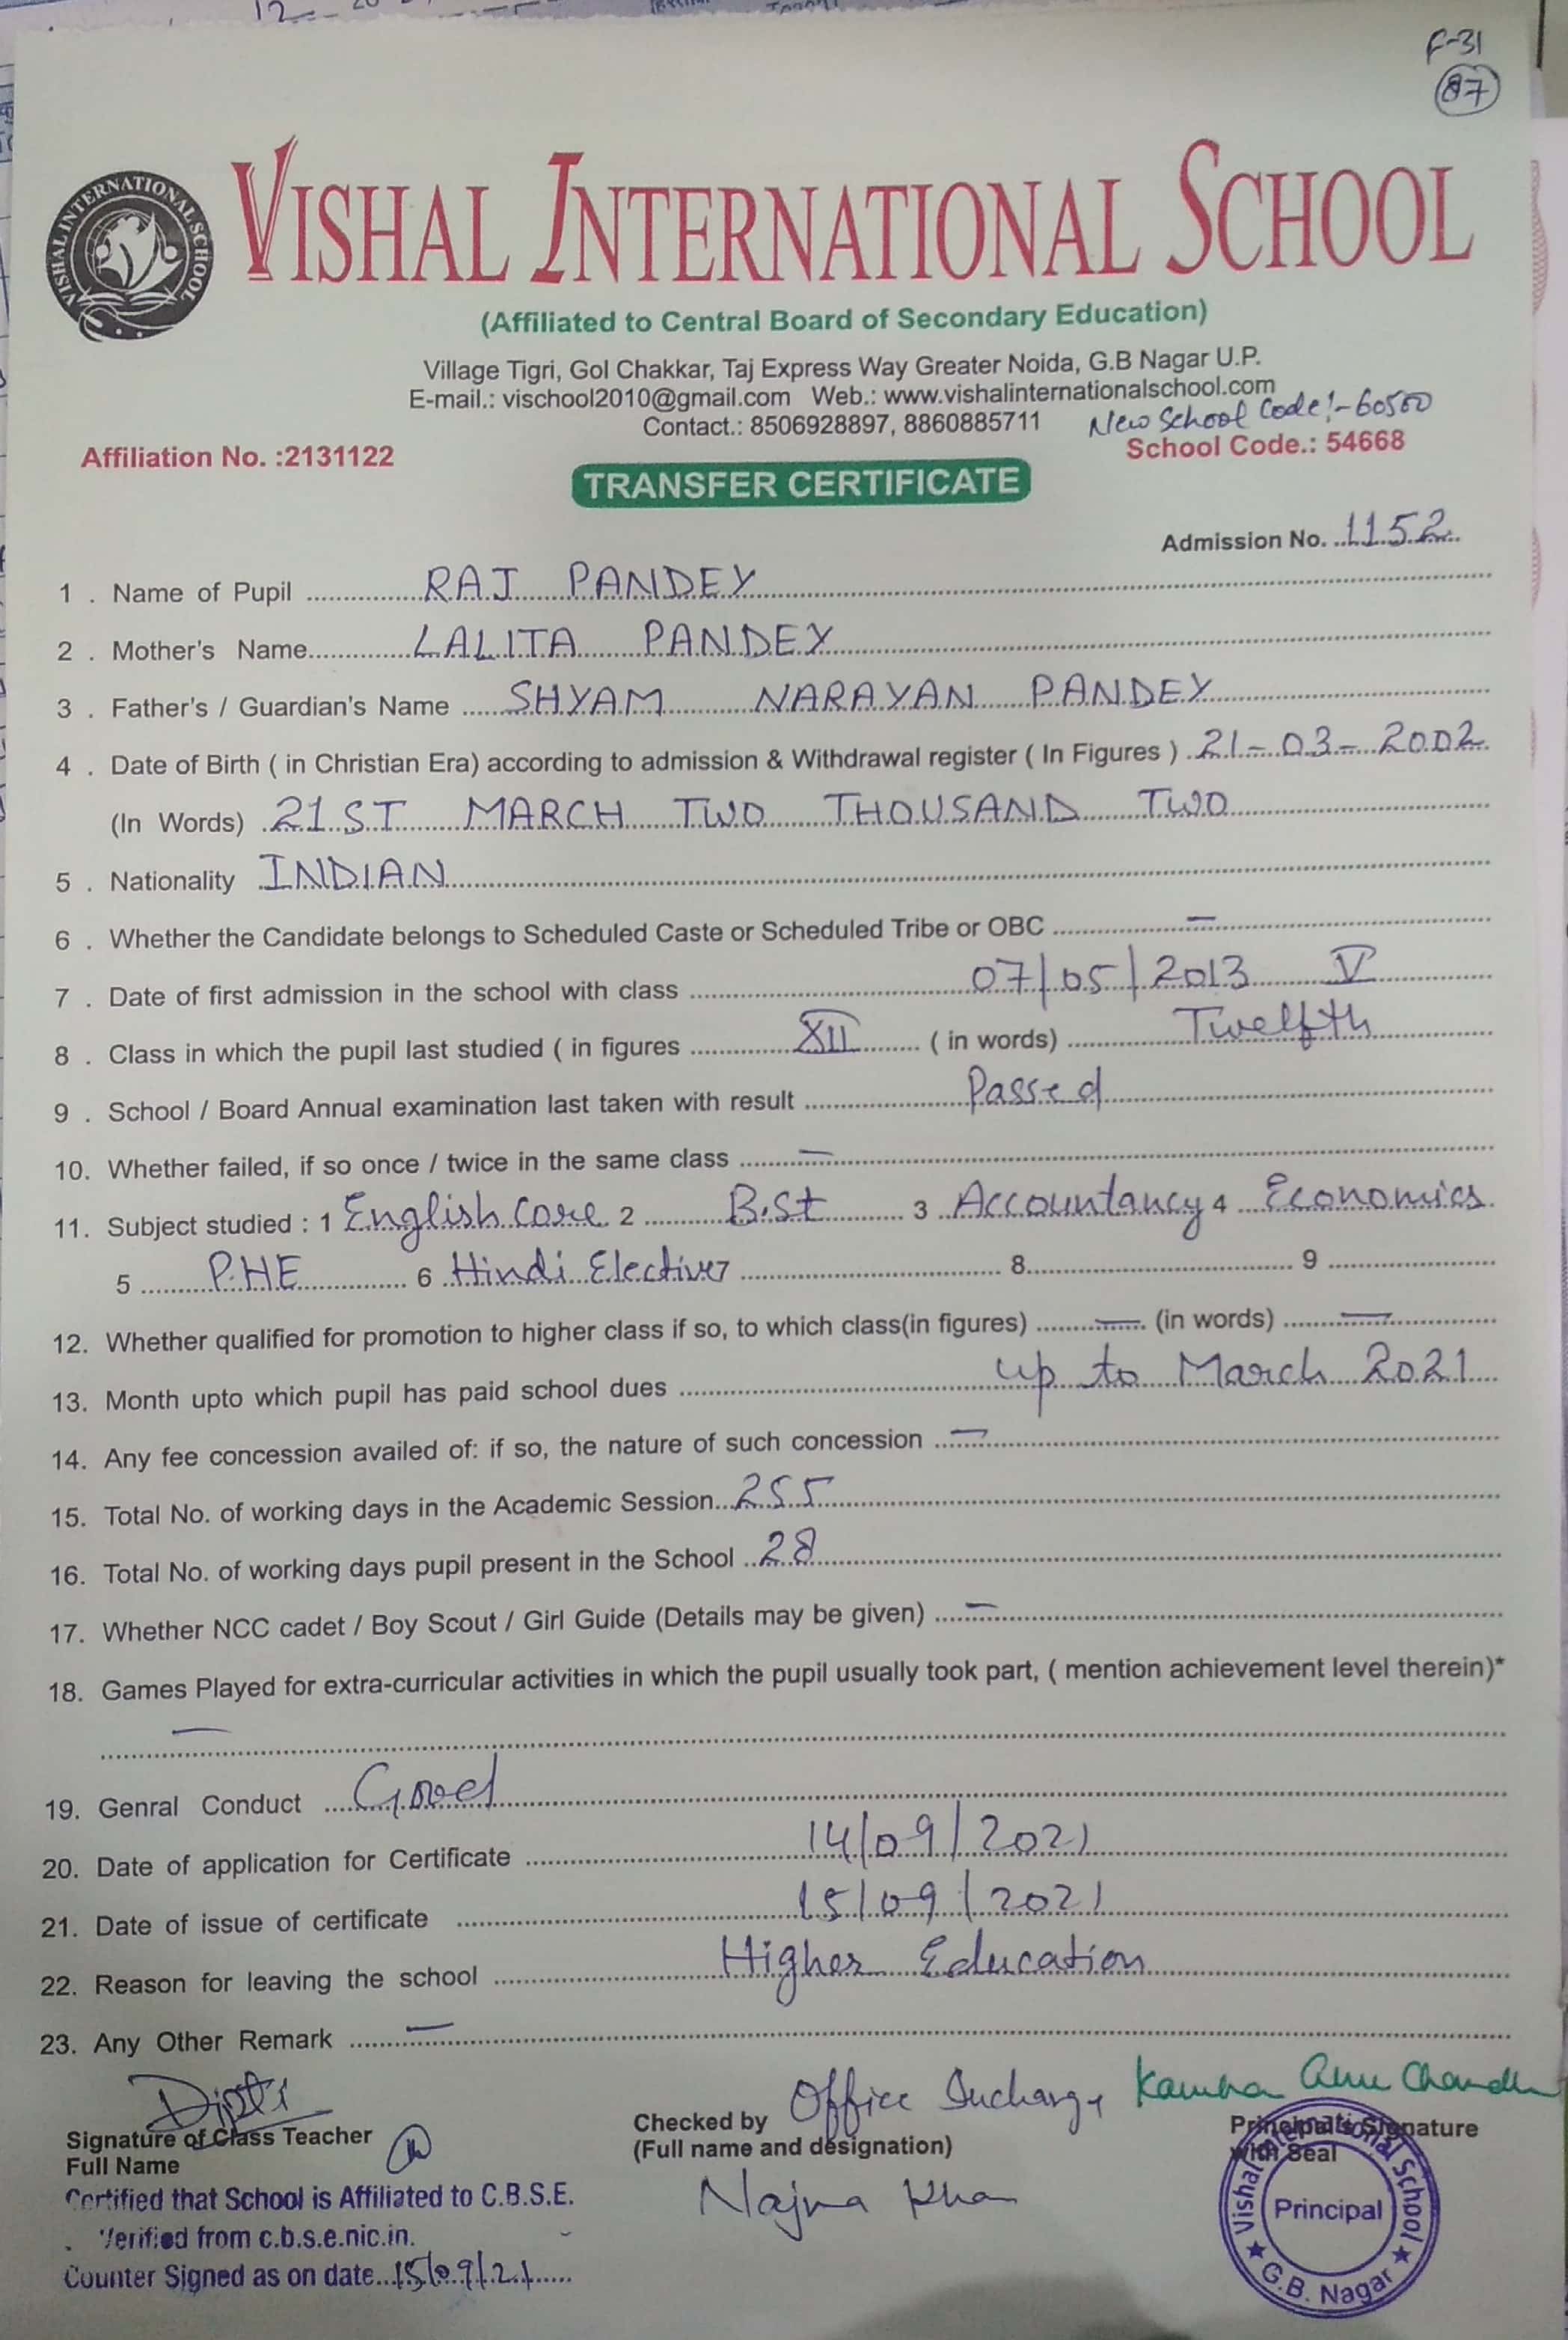 F-31
87
VISHAL INTERNATIONAL SCHOOL
VISHAL INTERNATIONAL SCHOOL
(Affiliated to Central Board of Secondary Education)
Village Tigri, Gol Chakkar, Taj Express Way Greater Noida, G.B Nagar U.P.
E-mail.: vischool2010@gmail.com Web.: www.vishalinternationalschool.com
Contact.: 8506928897, 8860885711 New School Code:- 60500
Affiliation No. :2131122 School Code.: 54668
TRANSFER CERTIFICATE
Admission No. 1152
1 . Name of Pupil RAJ PANDEY
2 . Mother's Name LALITA PANDEY
3 . Father's / Guardian's Name SHYAM NARAYAN PANDEY
4 . Date of Birth ( in Christian Era) according to admission & Withdrawal register ( In Figures ) 21-03-2002
(In Words) 21ST MARCH TWO THOUSAND TWO
5 . Nationality INDIAN
6 . Whether the Candidate belongs to Scheduled Caste or Scheduled Tribe or OBC —
7 . Date of first admission in the school with class 07/05/2013 V
8 . Class in which the pupil last studied ( in figures XII ( in words) Twelfth
9 . School / Board Annual examination last taken with result Passed
10. Whether failed, if so once / twice in the same class —
11. Subject studied : 1 English Core 2 B.St 3 Accountancy 4 Economics
5 P.HE 6 Hindi Elective 7 8 9
12. Whether qualified for promotion to higher class if so, to which class(in figures) — (in words) —
13. Month upto which pupil has paid school dues up to March 2021
14. Any fee concession availed of: if so, the nature of such concession —
15. Total No. of working days in the Academic Session 255
16. Total No. of working days pupil present in the School 28
17. Whether NCC cadet / Boy Scout / Girl Guide (Details may be given) —
18. Games Played for extra-curricular activities in which the pupil usually took part, ( mention achievement level therein)*
—
19. Genral Conduct Good
20. Date of application for Certificate 14/09/2021
21. Date of issue of certificate 15/09/2021
22. Reason for leaving the school Higher Education
23. Any Other Remark —
Dipti Office Incharge
Signature of Class Teacher Checked by Principal's Signature
Full Name (Full name and designation) with Seal
Najma Khan
Certified that School is Affiliated to C.B.S.E.
Verified from c.b.s.e.nic.in.
Counter Signed as on date 15/09/21
Vishal International School
Principal
G.B. Nagar